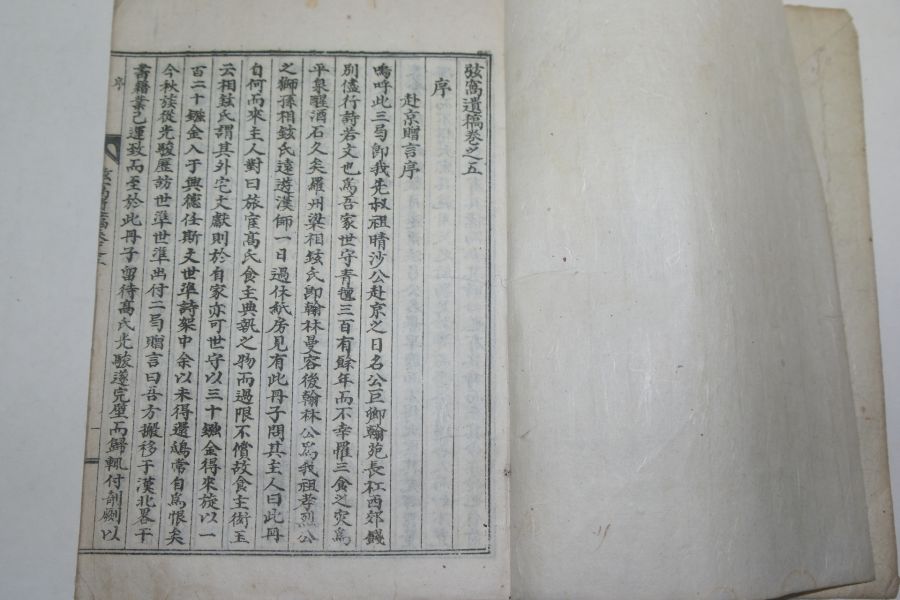 弦窩遺稿卷之五
序
赴京贈言序
嗚呼此三局卽我先叔祖晴沙公赴京之日名公巨卿翰苑長江西郊餞
別儘行詩若文也爲吾家世守青氊三百有餘年而不幸罹三食之灾爲
平泉醒酒石久矣羅州梁相鉉氏卽翰林曼容後翰林公爲我祖孝烈公
之獅孫相鉉氏遠遊漢師一日過休紙房見有此丹子問其主人曰此丹
自何而來主人對曰旅宦高氏食主典執之物而過限不償故食主衒玉
云相鉉氏謂其外宅文獻則於自家亦可世守以三十鏹金得來旋以一
百二十鏹金入于興德任斯文世準詩架中余以未得還鴆常自爲恨矣
今秋族從光駿歷訪世準世準出付二局贈言曰吾方搬移于漢北畧干
書籍業已運致而至於此丹子留待高氏光駿遂完璧而歸輒付剞劂以
序